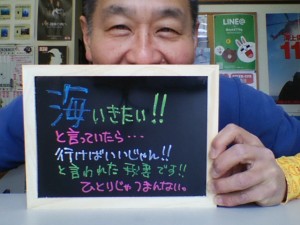 海いきたい!!
と言っていたら・・・
行けばいいじゃん!!
と言われた 秘書です!!
ひとりじゃつまんない。
LINE